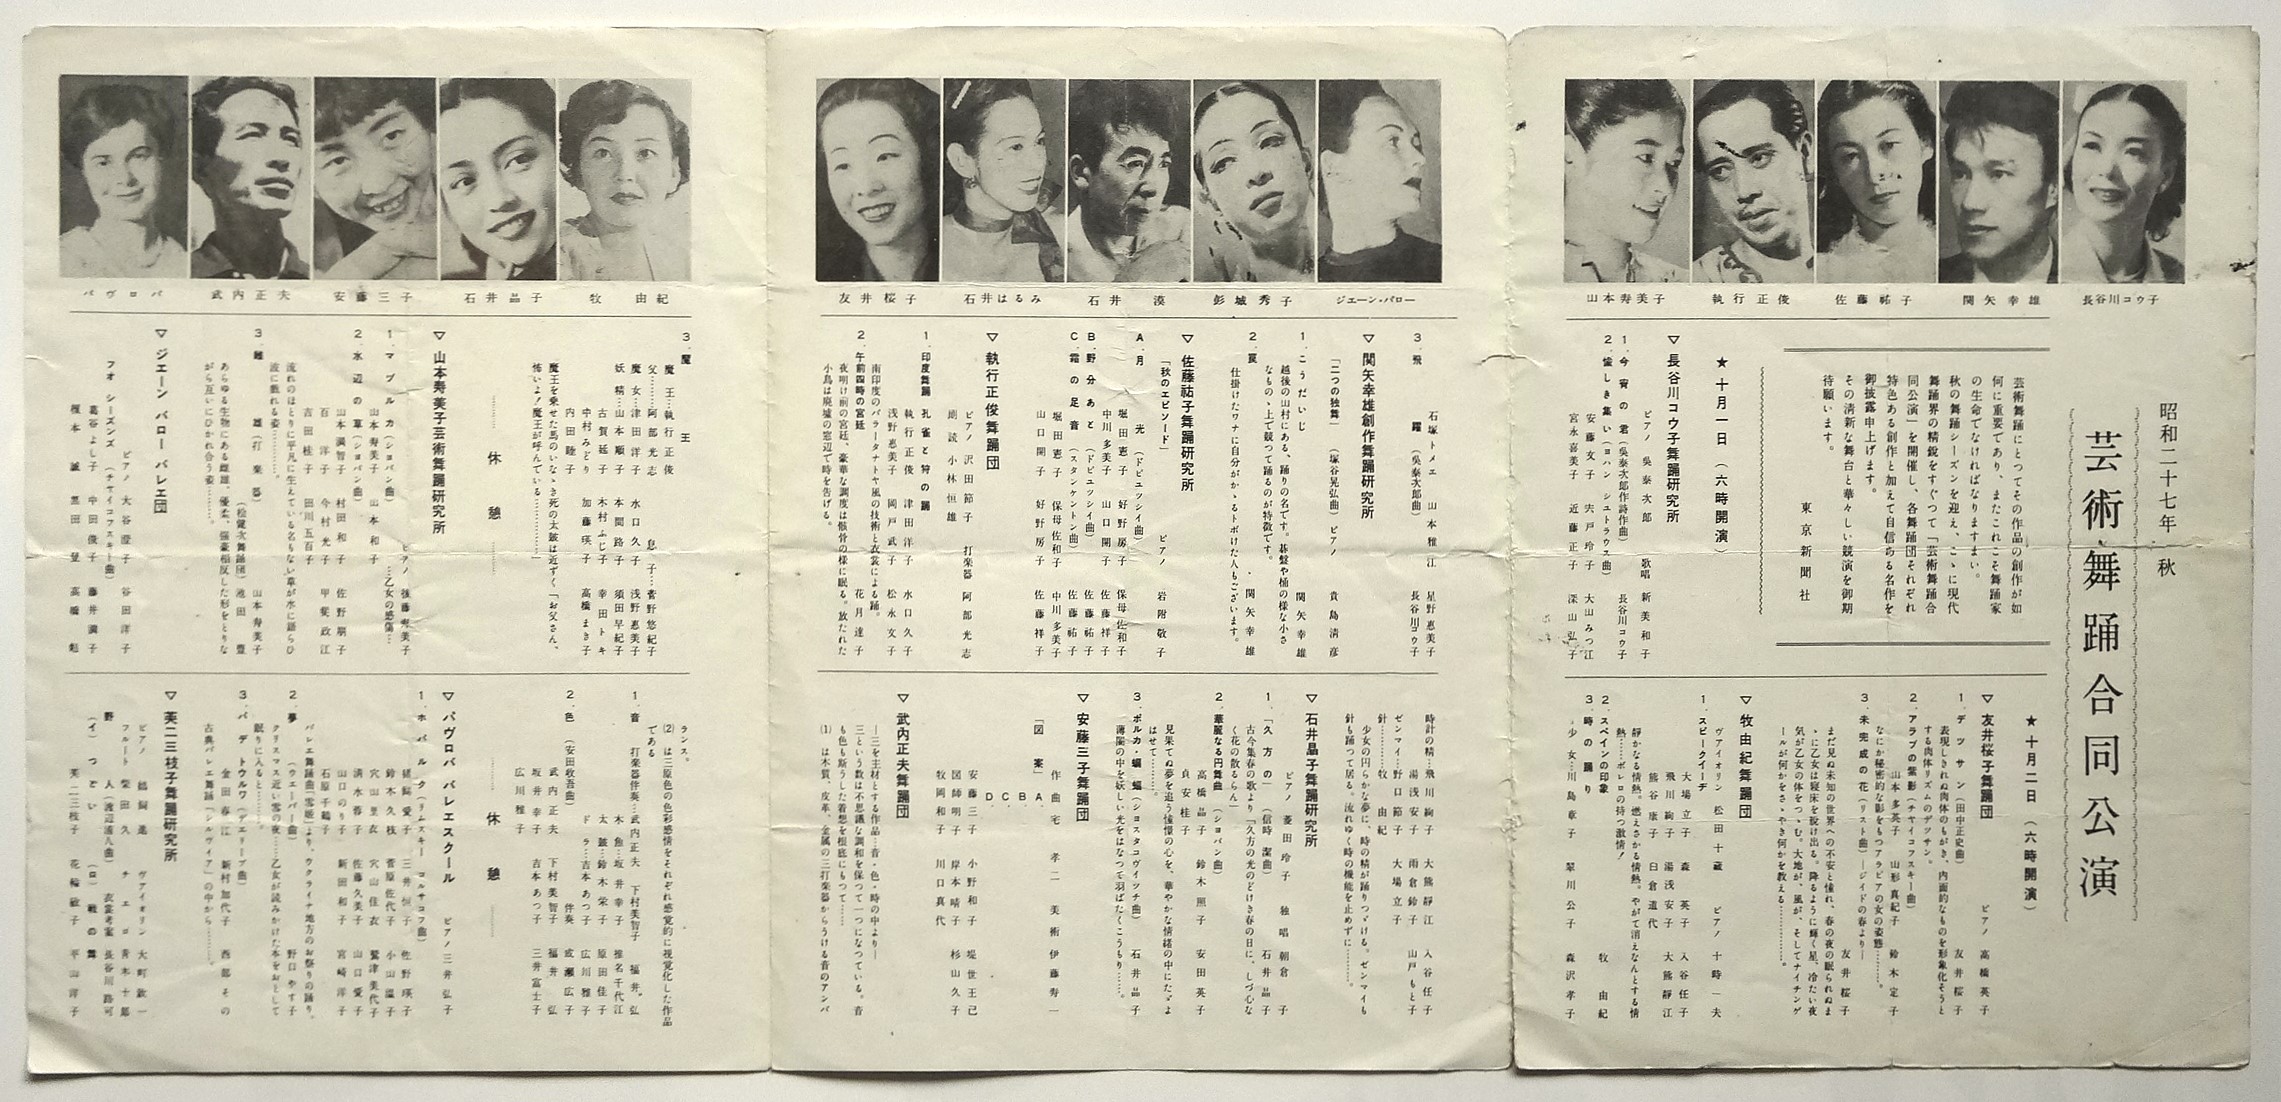 昭和二十七年 秋
芸術舞踊合同公演
長谷川コウ子
関矢幸雄
佐藤祐子
執行正俊
山本寿美子
ジェーン・バロー
彭城秀子
石井 漠
石井はるみ
友井桜子
牧 由紀
石井晶子
安藤三子
武内正夫
パヴロバ
芸術舞踊にとつてその作品の創作が如
何に重要であり、またこれこそ舞踊家
の生命でなければなりますまい。
秋の舞踊シーズンを迎え、こゝに現代
舞踊界の精鋭をすぐつて「芸術舞踊合
同公演」を開催し、各舞踊団それぞれ
特色ある創作と加えて自信ある名作を
御披露申上げます。
その清新な舞台と華々しい競演を御期
待願います。
東京新聞社
★十月一日(六時開演)
▽長谷川コウ子舞踊研究所
ピアノ 呉泰次郎 歌唱 新美和子
1.今宵の君(呉泰次郎作詩作曲) 長谷川コウ子
2.愉しき集い(ヨハン シュトラウス曲) 大山みつ江
安藤文子 宍戸玲子
宮永喜美子 近藤正子 深山弘子
石塚トメエ 山本雅江 星野恵美子
3.飛躍(呉泰次郎曲) 長谷川コウ子
▽関矢幸雄創作舞踊研究所
「二つの独舞」(塚谷晃弘曲) ピアノ 貴島清彦
1.こうだいじ 関矢幸雄
越後の山村にある、踊りの名です。碁盤や桶の様な小さ
なものゝ上で競つて踊るのが特徴です。
2.罠 関矢幸雄
仕掛けたワナに自分がかゝるトボけた人もございます。
▽佐藤祐子舞踊研究所
「秋のエピソード」 ピアノ 岩附敬子
A.月光(ドビュッシイ曲)
堀田憲子 好野房子 保母佐和子
中川多美子 山口開子 佐藤祥子
B.野分あと(ドビュッシイ曲) 佐藤祐子
C.霜の足音(スタンケントン曲) 佐藤祐子
堀田憲子 保母佐和子 中川多美子
山口開子 好野房子 佐藤祥子
▽執行正俊舞踊団
ピアノ 沢田節子 打楽器 阿部光志
朗読 小林恒雄
1.印度舞踊 孔雀と狩の踊
執行正俊 津田洋子 水口久子
浅野恵美子 岡戸武子 松永文子
南印度のバラータナトヤ風の技術と衣裳による踊。
2.午前四時の宮廷 花月達子
夜明け前の宮廷、豪華な調度は骸骨の様に眠る。放たれた
小鳥は廃墟の窓辺で時を告げる。
3.魔王
魔王…執行正俊 息子…菅野悠紀子
父………阿部光志
魔女…津田洋子 水口久子 浅野恵美子
妖精…山本順子 本間路子 須田早紀子
古賀延子 木村ふじ子 幸田トキ
中村みどり 加藤瑛子 高橋まき子
内田睦子
魔王を乗せた馬のいなゝき死の太鼓は近ずく、「お父さん、
怖いよ!魔王が呼んでいる…………」
休憩
▽山本寿美子芸術舞踊研究所
ピアノ 後藤寿美子
1.マヅルカ(ショパン曲) …乙女の感傷…
山本寿美子 山本和子
2.水辺の草(ショパン曲)
山本満智子 村田和子 佐野朋子
百洋子 今村光子 甲斐政江
吉田桂子 田川五百子
流れのほとりに平凡に生えている名もない草が水に語らひ
波に戯れる姿………
3.雌雄(打楽器) 山本寿美子
(松健次舞踊団) 池田 豊
あらゆる生物にある雌雄、優柔、強豪相反した形をとりな
がら互いにひかれ合う姿………
▽ジエーン バロー バレエ団
ピアノ 大谷澄子 谷田洋子
フォ シーズンズ(チャイコフスキー曲)
葛谷よし子 中田俊子 藤井満子
榎本 誠 黒田 昱 高橋 彪
★十月二日(六時開演)
▽友井桜子舞踊団
ピアノ 高橋英子
1.デッサン(田中正史曲) 友井桜子
表現しきれぬ肉体のもがき、内面的なものを形象化そうと
する肉体リズムのデッサン。
2.アラブの紫影(チャイコフスキー曲)
山本多英子 山形真紀子 鈴木定子
なにか秘密的な影をもつアラビアの女の姿態………。
3.未完成の花(リスト曲)―ジイドの春より― 友井桜子
まだ見ぬ未知の世界への不安と憧れ、春の夜の眠られぬま
ゝに乙女は寝床を脱け出る。降るように輝く星、冷たい夜
気が乙女の体をつゝむ。大地が、風が、そしてナイチンゲ
ールが何かをさゝやき何かを教える…………。
▽牧由紀舞踊団
ヴァイオリン 松田十蔵 ピアノ 十時一夫
1.スピークイーヂ
大場立子 森英子 入谷任子
飛川絢子 湯浅安子 大熊靜江
熊谷康子 臼倉道代
2.スペインの印象 牧由紀
靜かなる情熱。燃えさかる情熱。やがて消えなんとする情
熱…ボレロの待つ激情!
3.時の踊り
少女…川島章子 翠川公子 森沢孝子
時計の精…飛川絢子 大熊靜江 入谷任子
湯浅安子 雨倉鈴子 山戸もと子
ゼンマイ…野口節子 大場立子
針………牧由紀
少女の円らかな夢に、時の精が踊りつゞける。ゼンマイも
針も踊つて居る。流れゆく時の機能を止めずに……
▽石井晶子舞踊研究所
ピアノ 菱田玲子 独唱 朝倉 子
1.「久方の」(信時潔曲) 石井晶子
古今集春の歌より「久方の光のどけき春の日に、しづ心な
く花の散るらん」
2.華麗なる円舞曲(ショパン曲)
高橋晶子 鈴木照子 安田英子
貞安桂子
見果てぬ夢を追う憧憬の心を、華やかな情緒の中にたゞよ
はせて………。
3.ポルカ・蝙蝠(ショスタコヴイッチ曲) 石井晶子
薄闇の中を妖しい光をはなつて羽ばたくこうもり……。
▽安藤三子舞踊団
作曲 宅孝二 美術 伊藤寿一
「図案」 A. B. C. D.
安藤三子 小野和子 堤世王己
図師明子 岸本晴子 杉山久子
牧岡和子 川口真代
▽武内正夫舞踊団
―三を主材とする作品―音・色・時の中より―
三という数は不思議な調和を保つて一つになつている。音
も色も斯うした着想を根底にもつて……
(1) は木質、皮革、金属の三打楽器からうける音のアンバ
ランス。
(2) は三原色の色彩感情をそれぞれ感覚的に視覚化した作品
である
1.音 打楽器伴奏…武内正夫 下村美智子 福井 弘
木魚…坂井幸子 椎名千代江
太鼓…鈴木栄子 原田佳子
ドラ…吉本あつ子 広川雅子
2.色(安田收吾曲) 伴奏 成瀬広子
武内正夫 下村美智子 福井 弘
坂井幸子 吉本あつ子 三井富士子
広川雅子
休憩
▽パヴロバ バレエスクール
ピアノ 三井弘子
1.ホパルク(リムスキー コルサコフ曲)
鵜飼愛子 三井恒子 佐野瑛子
鈴木久枝 菅原佐代子 小山温子
穴山里衣 穴山佳衣 鷲津美代子
清水春子 佐藤久美子 山口愛子
山口のり子 新田和子 宮崎洋子
石原千鶴子
バレエ舞踊曲「雪姫」より、ウクライナ地方のお祭りの踊り。
2.夢(ウェーバー曲) 野口やす子
クリスマス近い雪の夜…乙女が読みかけた本をおとして
眠りに入ると……
3.パ デ トゥルワ(デェリーブ曲)
金田春江 新村加代子 西部その
古典バレエ舞踊「シルヴィア」の中から……。
▽芙二三枝子舞踊研究所
ピアノ 鵜飼 進 ヴァイオリン 大町歓一
フルート 柴田久 チェロ 青木十郎
野人(渡辺浦人曲) 衣裳考案 長谷川路可
(イ)つどい (ロ)戦の舞
芙二三枝子 花輪敏子 平山洋子